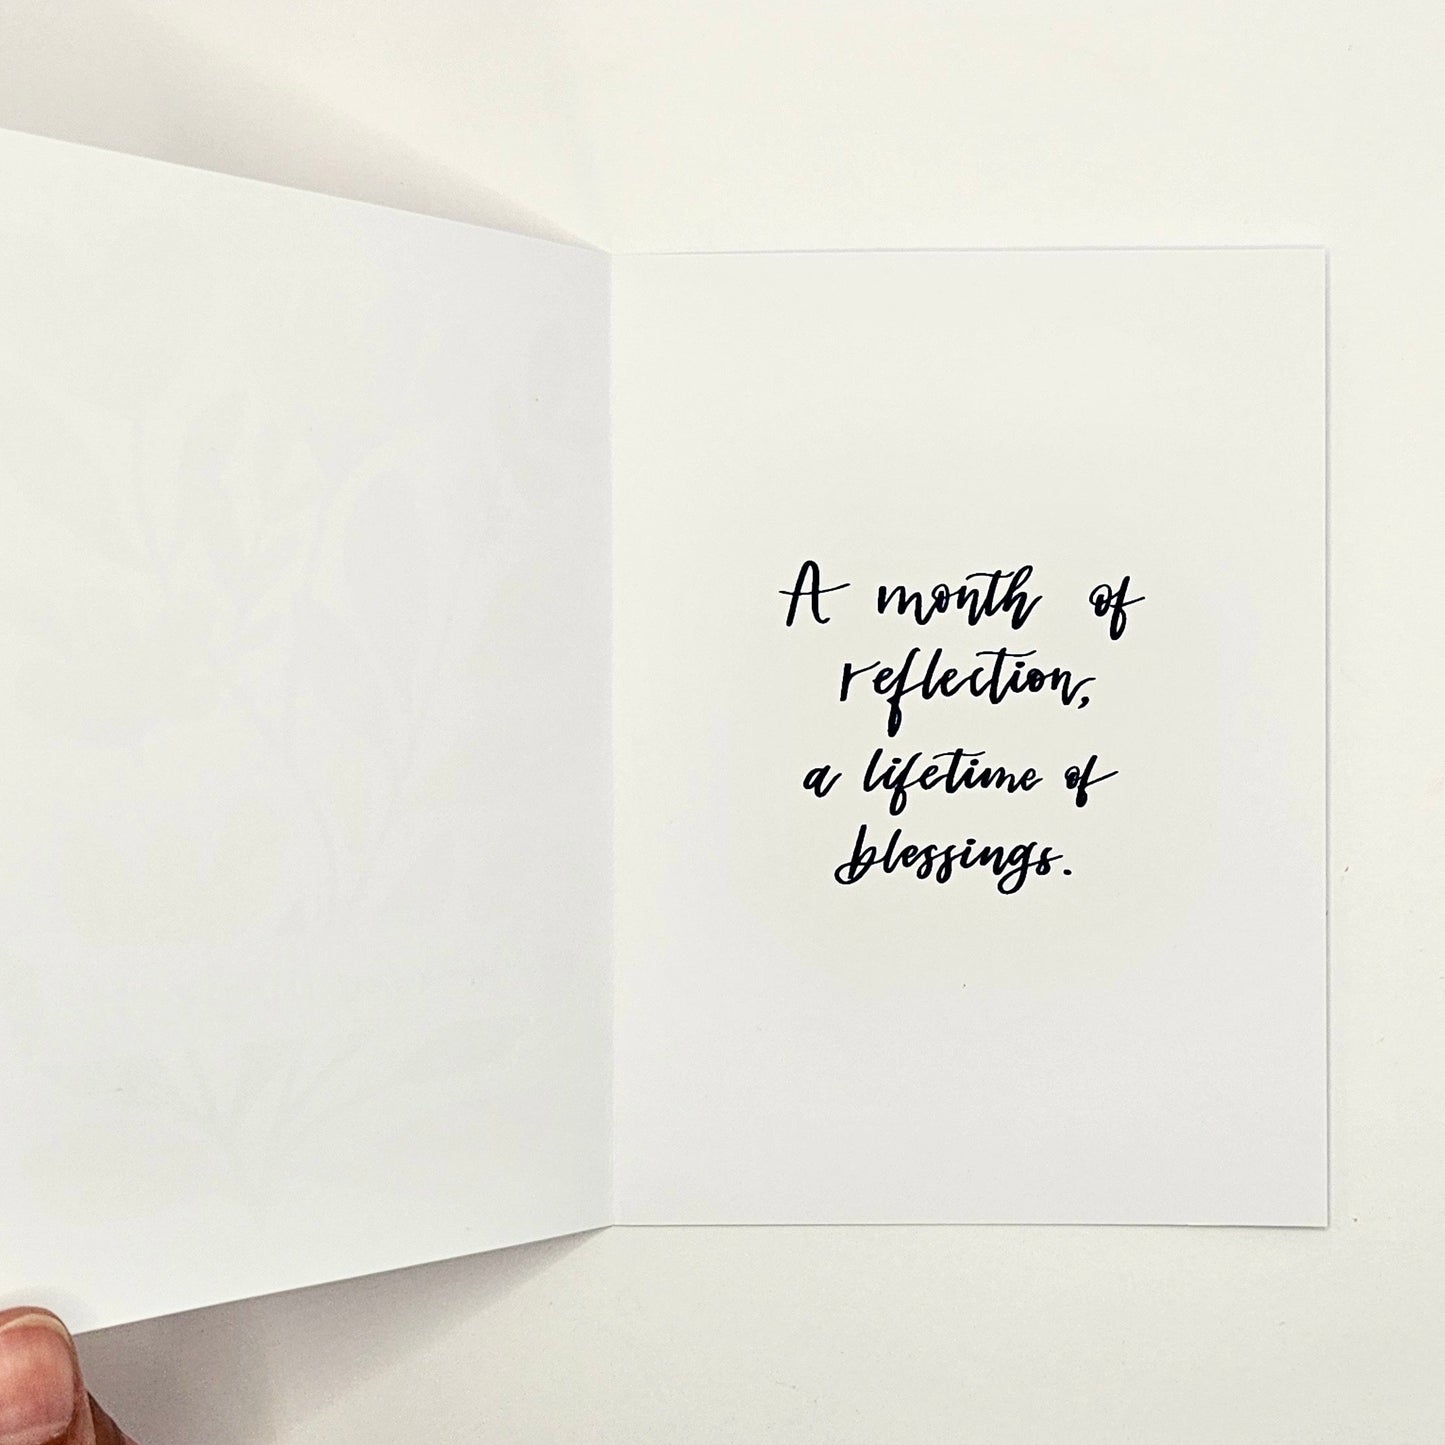 A month of
reflection,
a lifetime of
blessings.